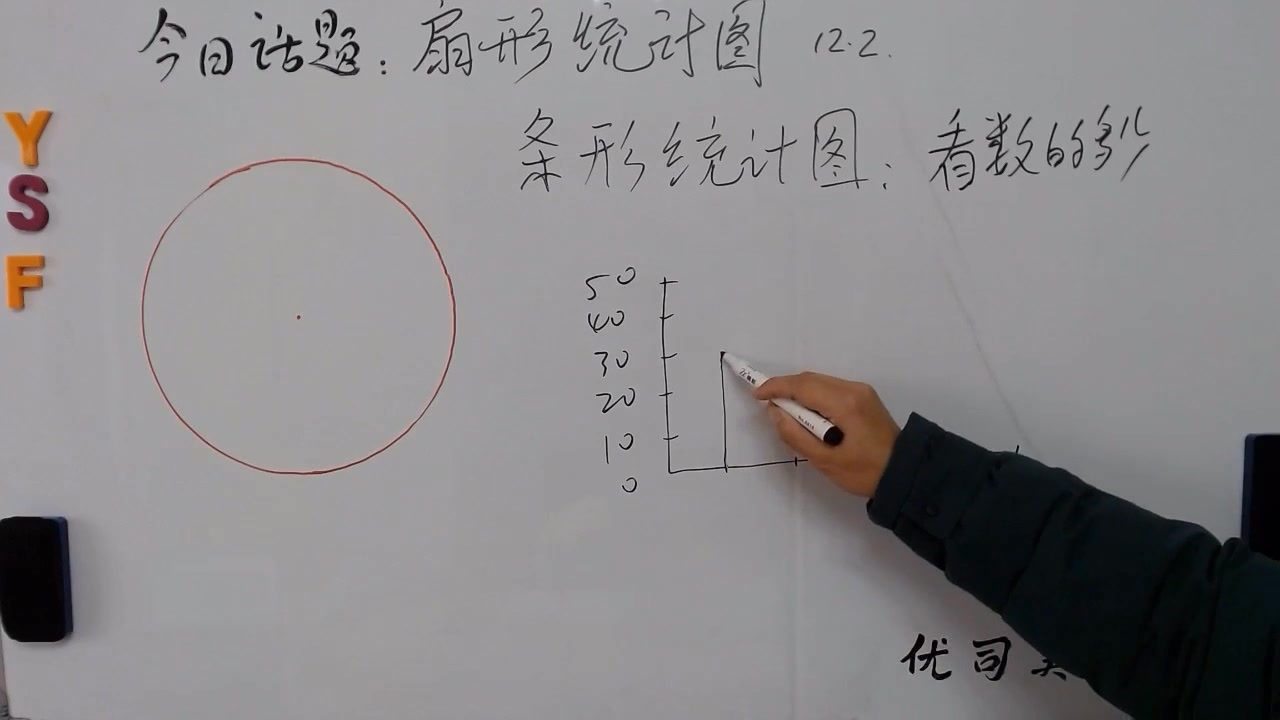 今日话题：扇形统计图 12.2.
条形统计图：看数的多少
Y
S
F
50
40
30
20
10
0
优司